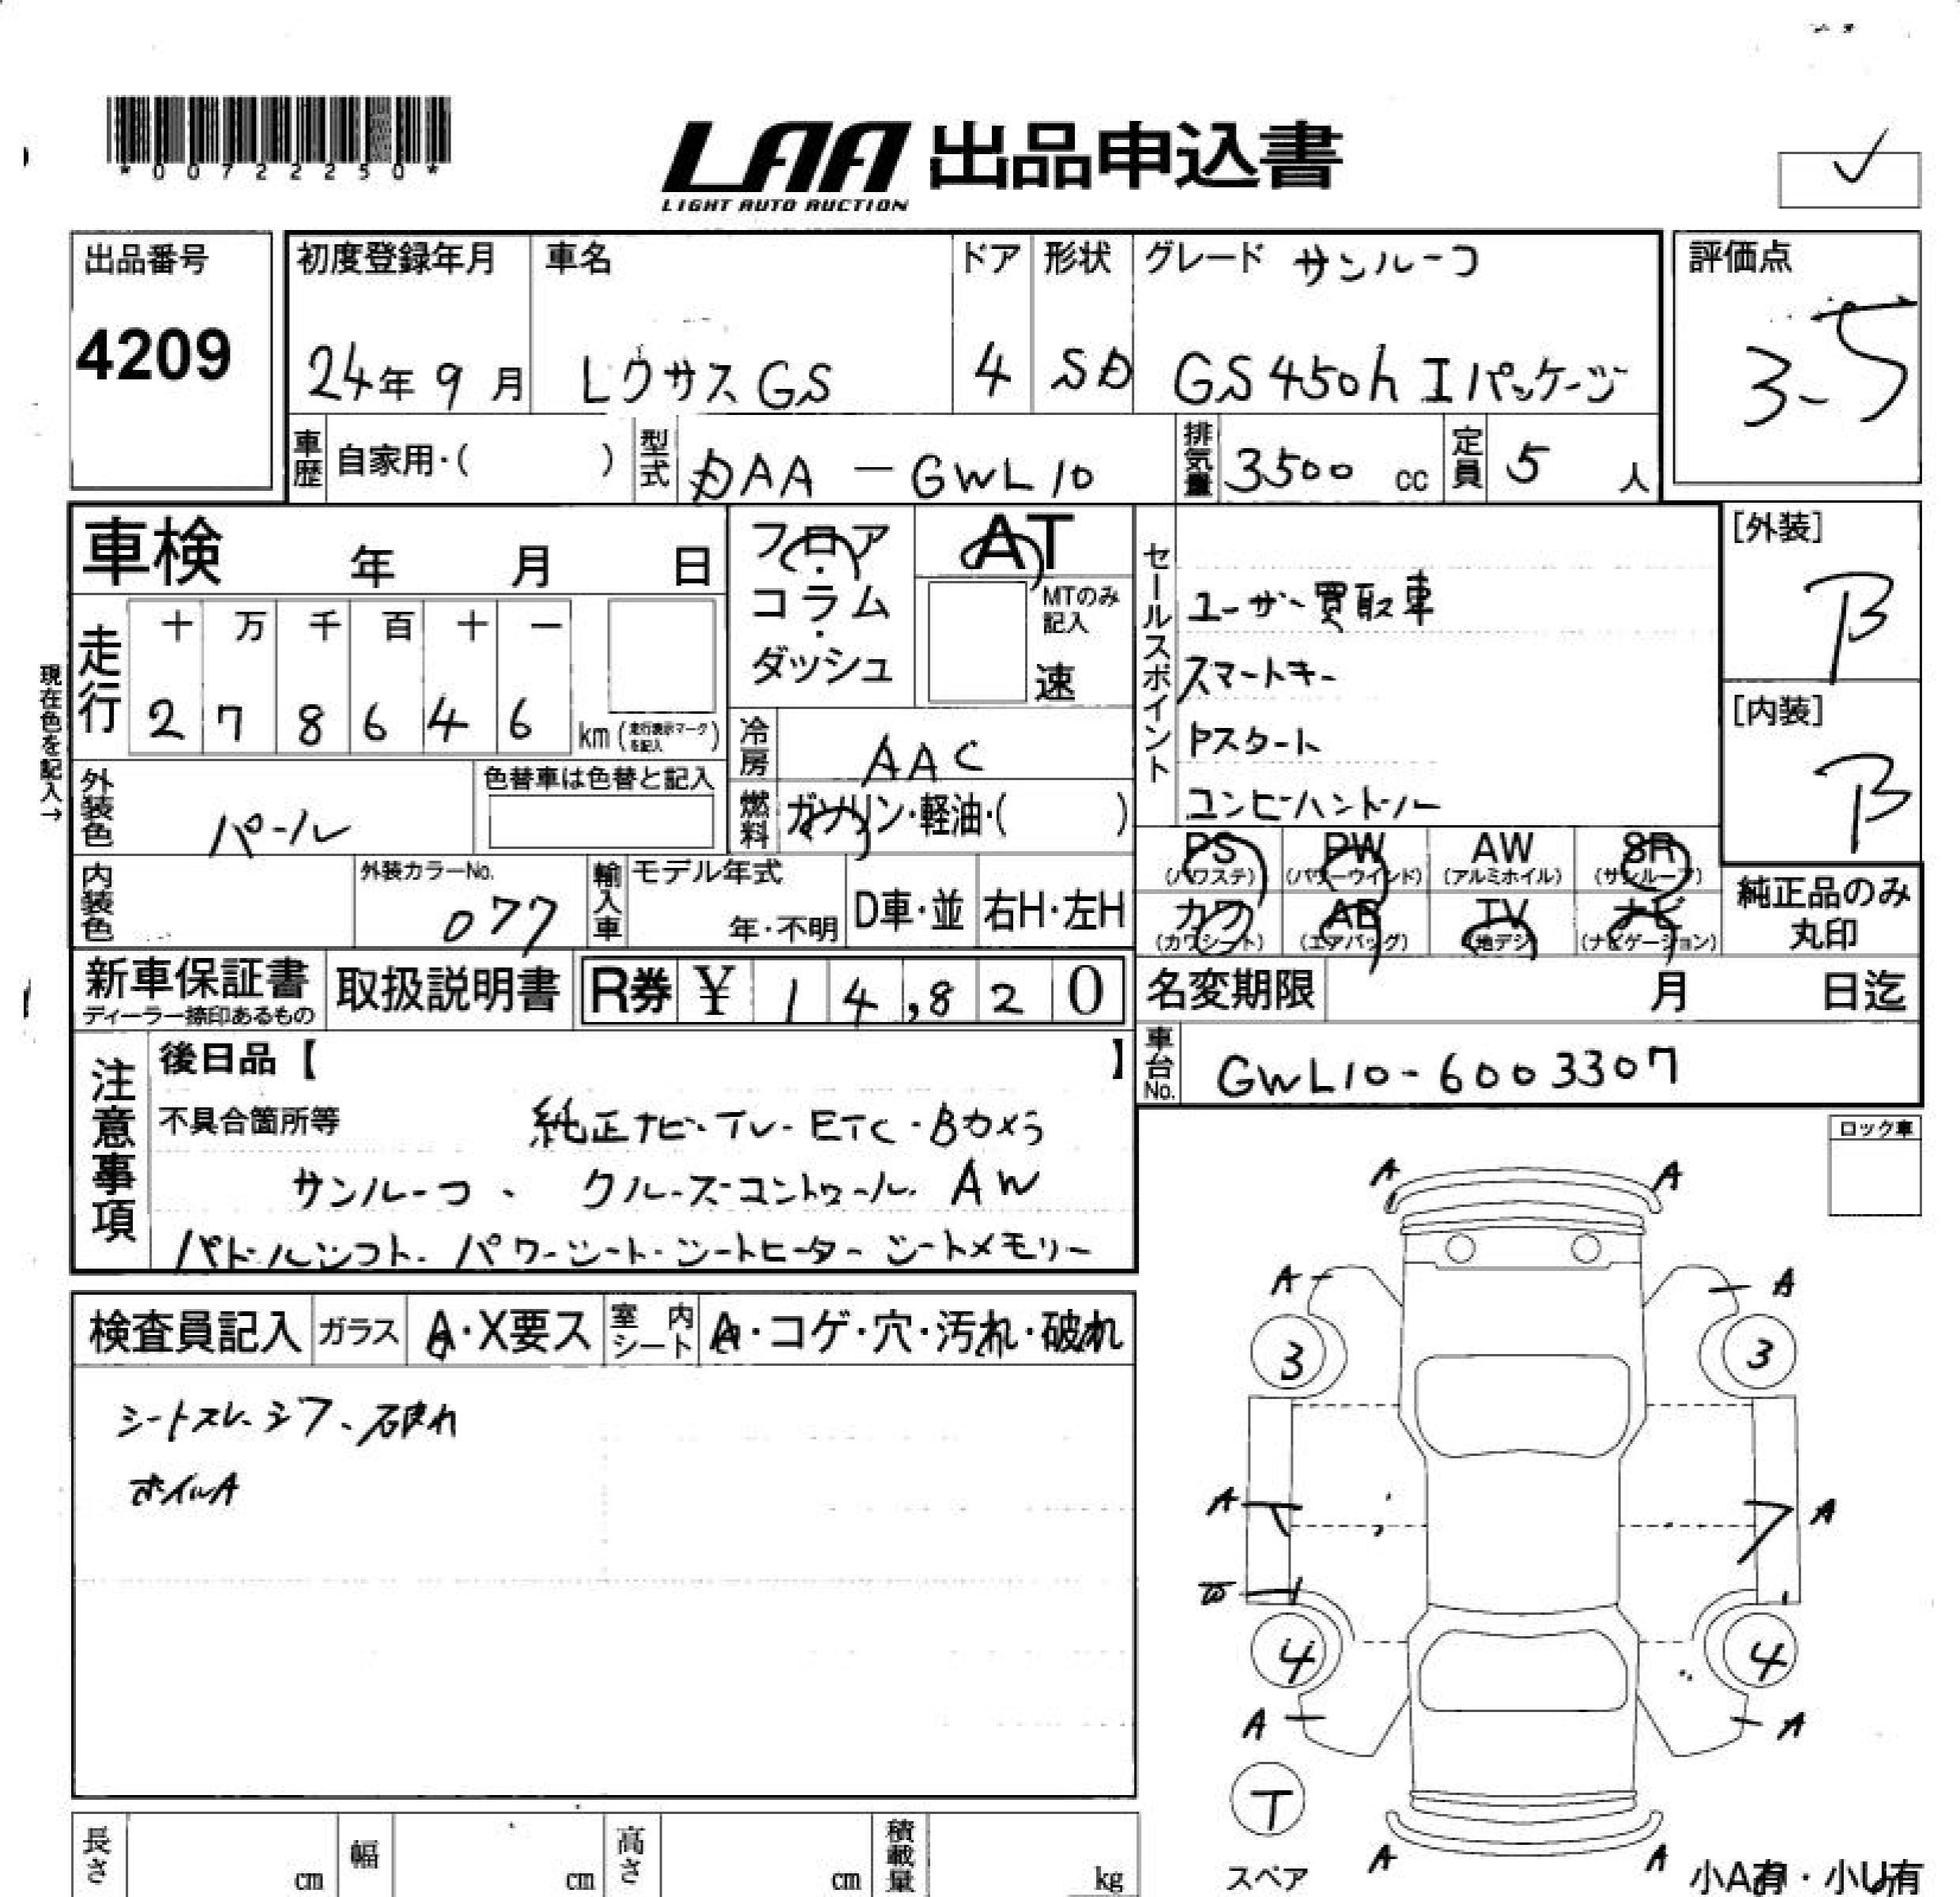 *00722250*
LAA 出品申込書
LIGHT AUTO AUCTION
出品番号
4209
初度登録年月
24年 9月
車名
レクサスGS
ドア
4
形状
SD
グレード サンルーフ
GS450h Iパッケージ
評価点
3-5
車歴 自家用・( )
型式 DAA-GWL10
排気量 3500 cc
定員 5 人
車検 年 月 日
フロア・コラム・ダッシュ
AT
MTのみ記入
速
走行
十 万 千 百 十 一
2 7 8 6 4 6 km (走行表示マークを記入)
現在色を記入→
外装色 パール
色替車は色替と記入
冷房 AAC
燃料 ガソリン・軽油・( )
内装色
外装カラーNo.
077
輸入車 モデル年式
年・不明
D車・並
右H・左H
セールスポイント
ユーザー買取車
スマートキー
Pスタート
コンビハンドル
[外装]
B
[内装]
B
PS (パワステ)
PW (パワーウインド)
AW (アルミホイル)
SR (サンルーフ)
カワ (カワシート)
AB (エアバッグ)
TV (地デジ)
ナビ (ナビゲーション)
純正品のみ
丸印
新車保証書
ディーラー捺印あるもの
取扱説明書
R券 ¥ 14,820
名変期限 月 日迄
車台No. GWL10-6003307
注意事項
後日品【 】
不具合箇所等 純正ナビ・TV・ETC・Bカメラ
サンルーフ、クルーズコントロール・AW
パドルシフト・パワーシート・シートヒーター・シートメモリー
ロック車
検査員記入
ガラス A・X要ス
室内シート A・コゲ・穴・汚れ・破れ
シートスレ・シワ、破れ
ホイルA
A A
A A
3 3
A A
4 4
A A
T
スペア
A A
小A有・小U有
長さ cm
幅 cm
高さ cm
積載量 kg